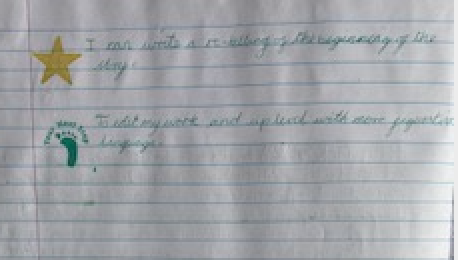 I can write a re-telling of the beginning of the
story.
To edit my work and uplevel with more figurative
language.